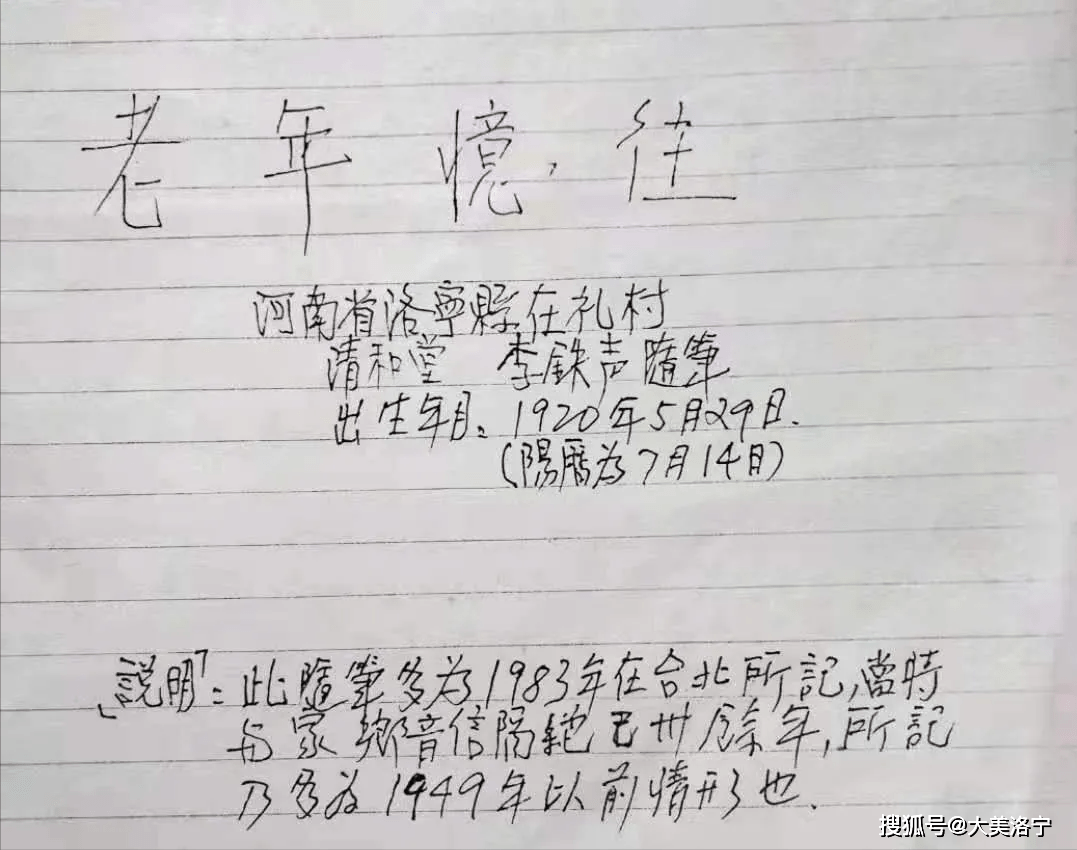 老年憶往
河南省洛寧縣在礼村
清和堂 李鉄声隨筆
出生年月：1920年5月29日.
(陽曆為7月14日)
「説明」：此隨筆多為1983年在台北所記,當時
与家鄉音信隔絶已卅餘年,所記
乃多為1949年以前情形也.
搜狐号@大美洛宁